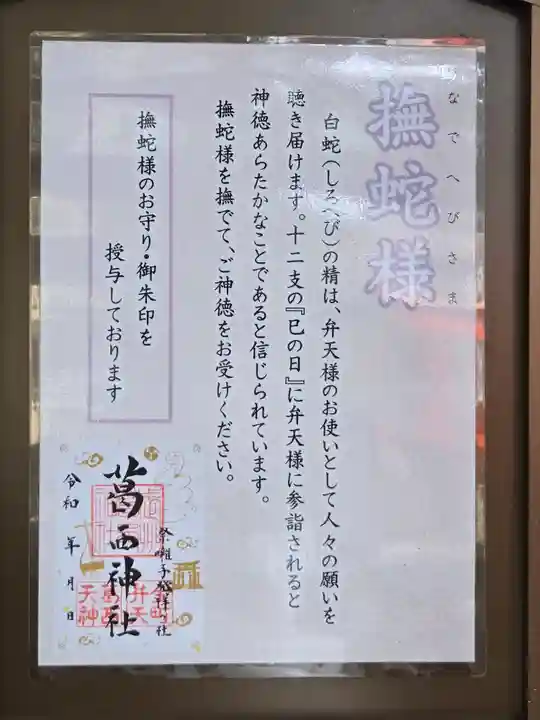 なでへびさま
撫蛇様
白蛇(しろへび)の精は、弁天様のお使いとして人々の願いを
聴き届けます。十二支の『巳の日』に弁天様に参詣されると
神徳あらたかなことであると信じられています。
撫蛇様を撫でて、ご神徳をお受けください。
撫蛇様のお守り・御朱印を
授与しております
祭囃子発祥の社
葛西神社
令和 年 月 日